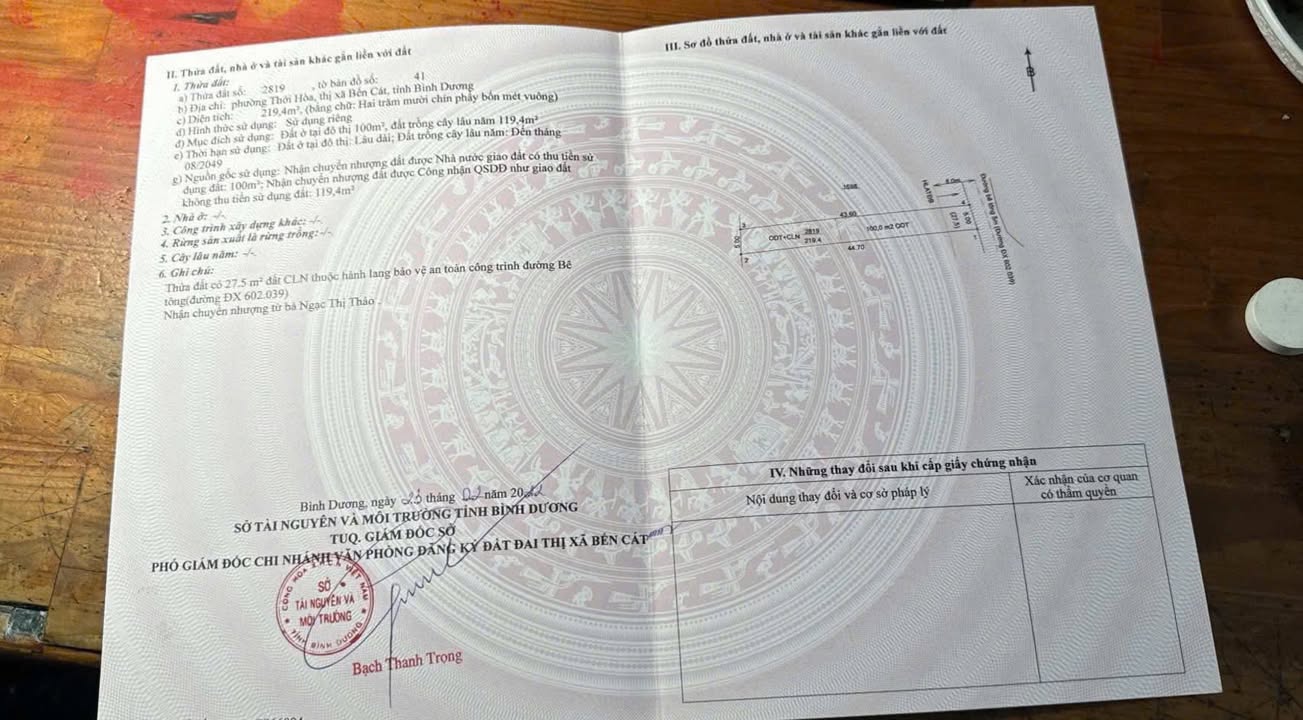 II. Thửa đất, nhà ở và tài sản khác gắn liền với đất
1. Thửa đất:
a) Thửa đất số: 2819 , tờ bản đồ số: 41
b) Địa chỉ: phường Thới Hòa, thị xã Bến Cát, tỉnh Bình Dương
c) Diện tích: 219,4m², (bằng chữ: Hai trăm mười chín phẩy bốn mét vuông)
d) Hình thức sử dụng: Sử dụng riêng
đ) Mục đích sử dụng: Đất ở tại đô thị 100m², đất trồng cây lâu năm 119,4m²
e) Thời hạn sử dụng: Đất ở tại đô thị: Lâu dài; Đất trồng cây lâu năm: Đến tháng
08/2049
g) Nguồn gốc sử dụng: Nhận chuyển nhượng đất được Nhà nước giao đất có thu tiền sử
dụng đất: 100m²; Nhận chuyển nhượng đất được Công nhận QSDĐ như giao đất
không thu tiền sử dụng đất: 119,4m²
2. Nhà ở: -/-.
3. Công trình xây dựng khác: -/-.
4. Rừng sản xuất là rừng trồng:-/-.
5. Cây lâu năm: -/-.
6. Ghi chú:
Thửa đất có 27.5 m² đất CLN thuộc hành lang bảo vệ an toàn công trình đường Bê
tông(đường ĐX 602.039)
Nhận chuyển nhượng từ bà Ngạc Thị Thảo
Bình Dương, ngày 23 tháng 02 năm 2022
SỞ TÀI NGUYÊN VÀ MÔI TRƯỜNG TỈNH BÌNH DƯƠNG
TUQ. GIÁM ĐỐC SỞ
PHÓ GIÁM ĐỐC CHI NHÁNH VĂN PHÒNG ĐĂNG KÝ ĐẤT ĐAI THỊ XÃ BẾN CÁT
CỘNG HÒA VIỆT NAM
SỞ
TÀI NGUYÊN VÀ
MÔI TRƯỜNG
TỈNH BÌNH DƯƠNG
Bạch Thanh Trọng
III. Sơ đồ thửa đất, nhà ở và tài sản khác gắn liền với đất
B
HLATĐB
6.0m
43.60
5.00
ODT+CLN
2819
219.4
100,0 m2 ODT
(27.5)
5.00
44.70
3
2
4
1
IV. Những thay đổi sau khi cấp giấy chứng nhận
Nội dung thay đổi và cơ sở pháp lý
Xác nhận của cơ quan
có thẩm quyền